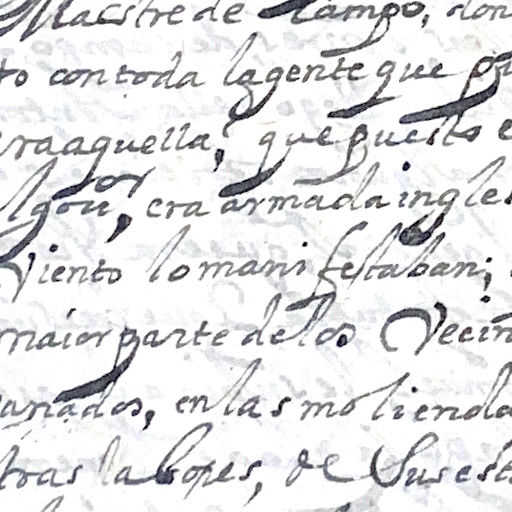 Maestre de Campo, don
to con toda la gente que pu
era aquella, que puesto e
lgou.or, era armada ingles
Viento lo manifestaban;
maior parte de los Vecin
anados, en las molienda
tras labores, de Sus est